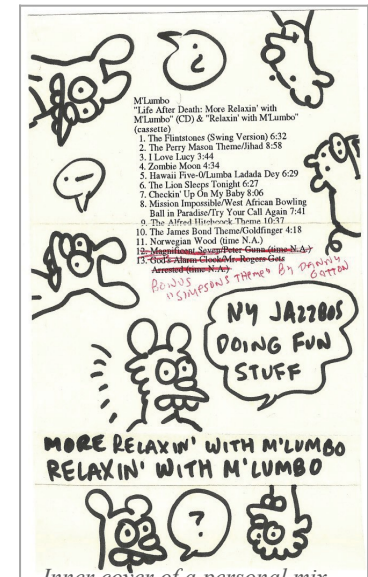 M'Lumbo
"Life After Death: More Relaxin' with
M'Lumbo" (CD) & "Relaxin' with M'Lumbo"
(cassette)
1. The Flintstones (Swing Version) 6:32
2. The Perry Mason Theme/Jihad 8:58
3. I Love Lucy 3:44
4. Zombie Moon 4:34
5. Hawaii Five-0/Lumba Ladada Dey 6:29
6. The Lion Sleeps Tonight 6:27
7. Checkin' Up On My Baby 8:06
8. Mission Impossible/West African Bowling
Ball in Paradise/Try Your Call Again 7:41
9. The Alfred Hitchcock Theme 10:37
10. The James Bond Theme/Goldfinger 4:18
11. Norwegian Wood (time N.A.)
12. Magnificent Seven/Peter Gunn (time N.A.)
13. God's Alarm Clock/Mr. Rogers Gets
Arrested (time N.A.)
BONUS
"SIMPSONS THEME" BY DANNY
GATTON
¿
!
NY JAZZBOS
DOING FUN
STUFF
MORE RELAXIN' WITH M'LUMBO
RELAXIN' WITH M'LUMBO
?
Inner cover of a personal mix